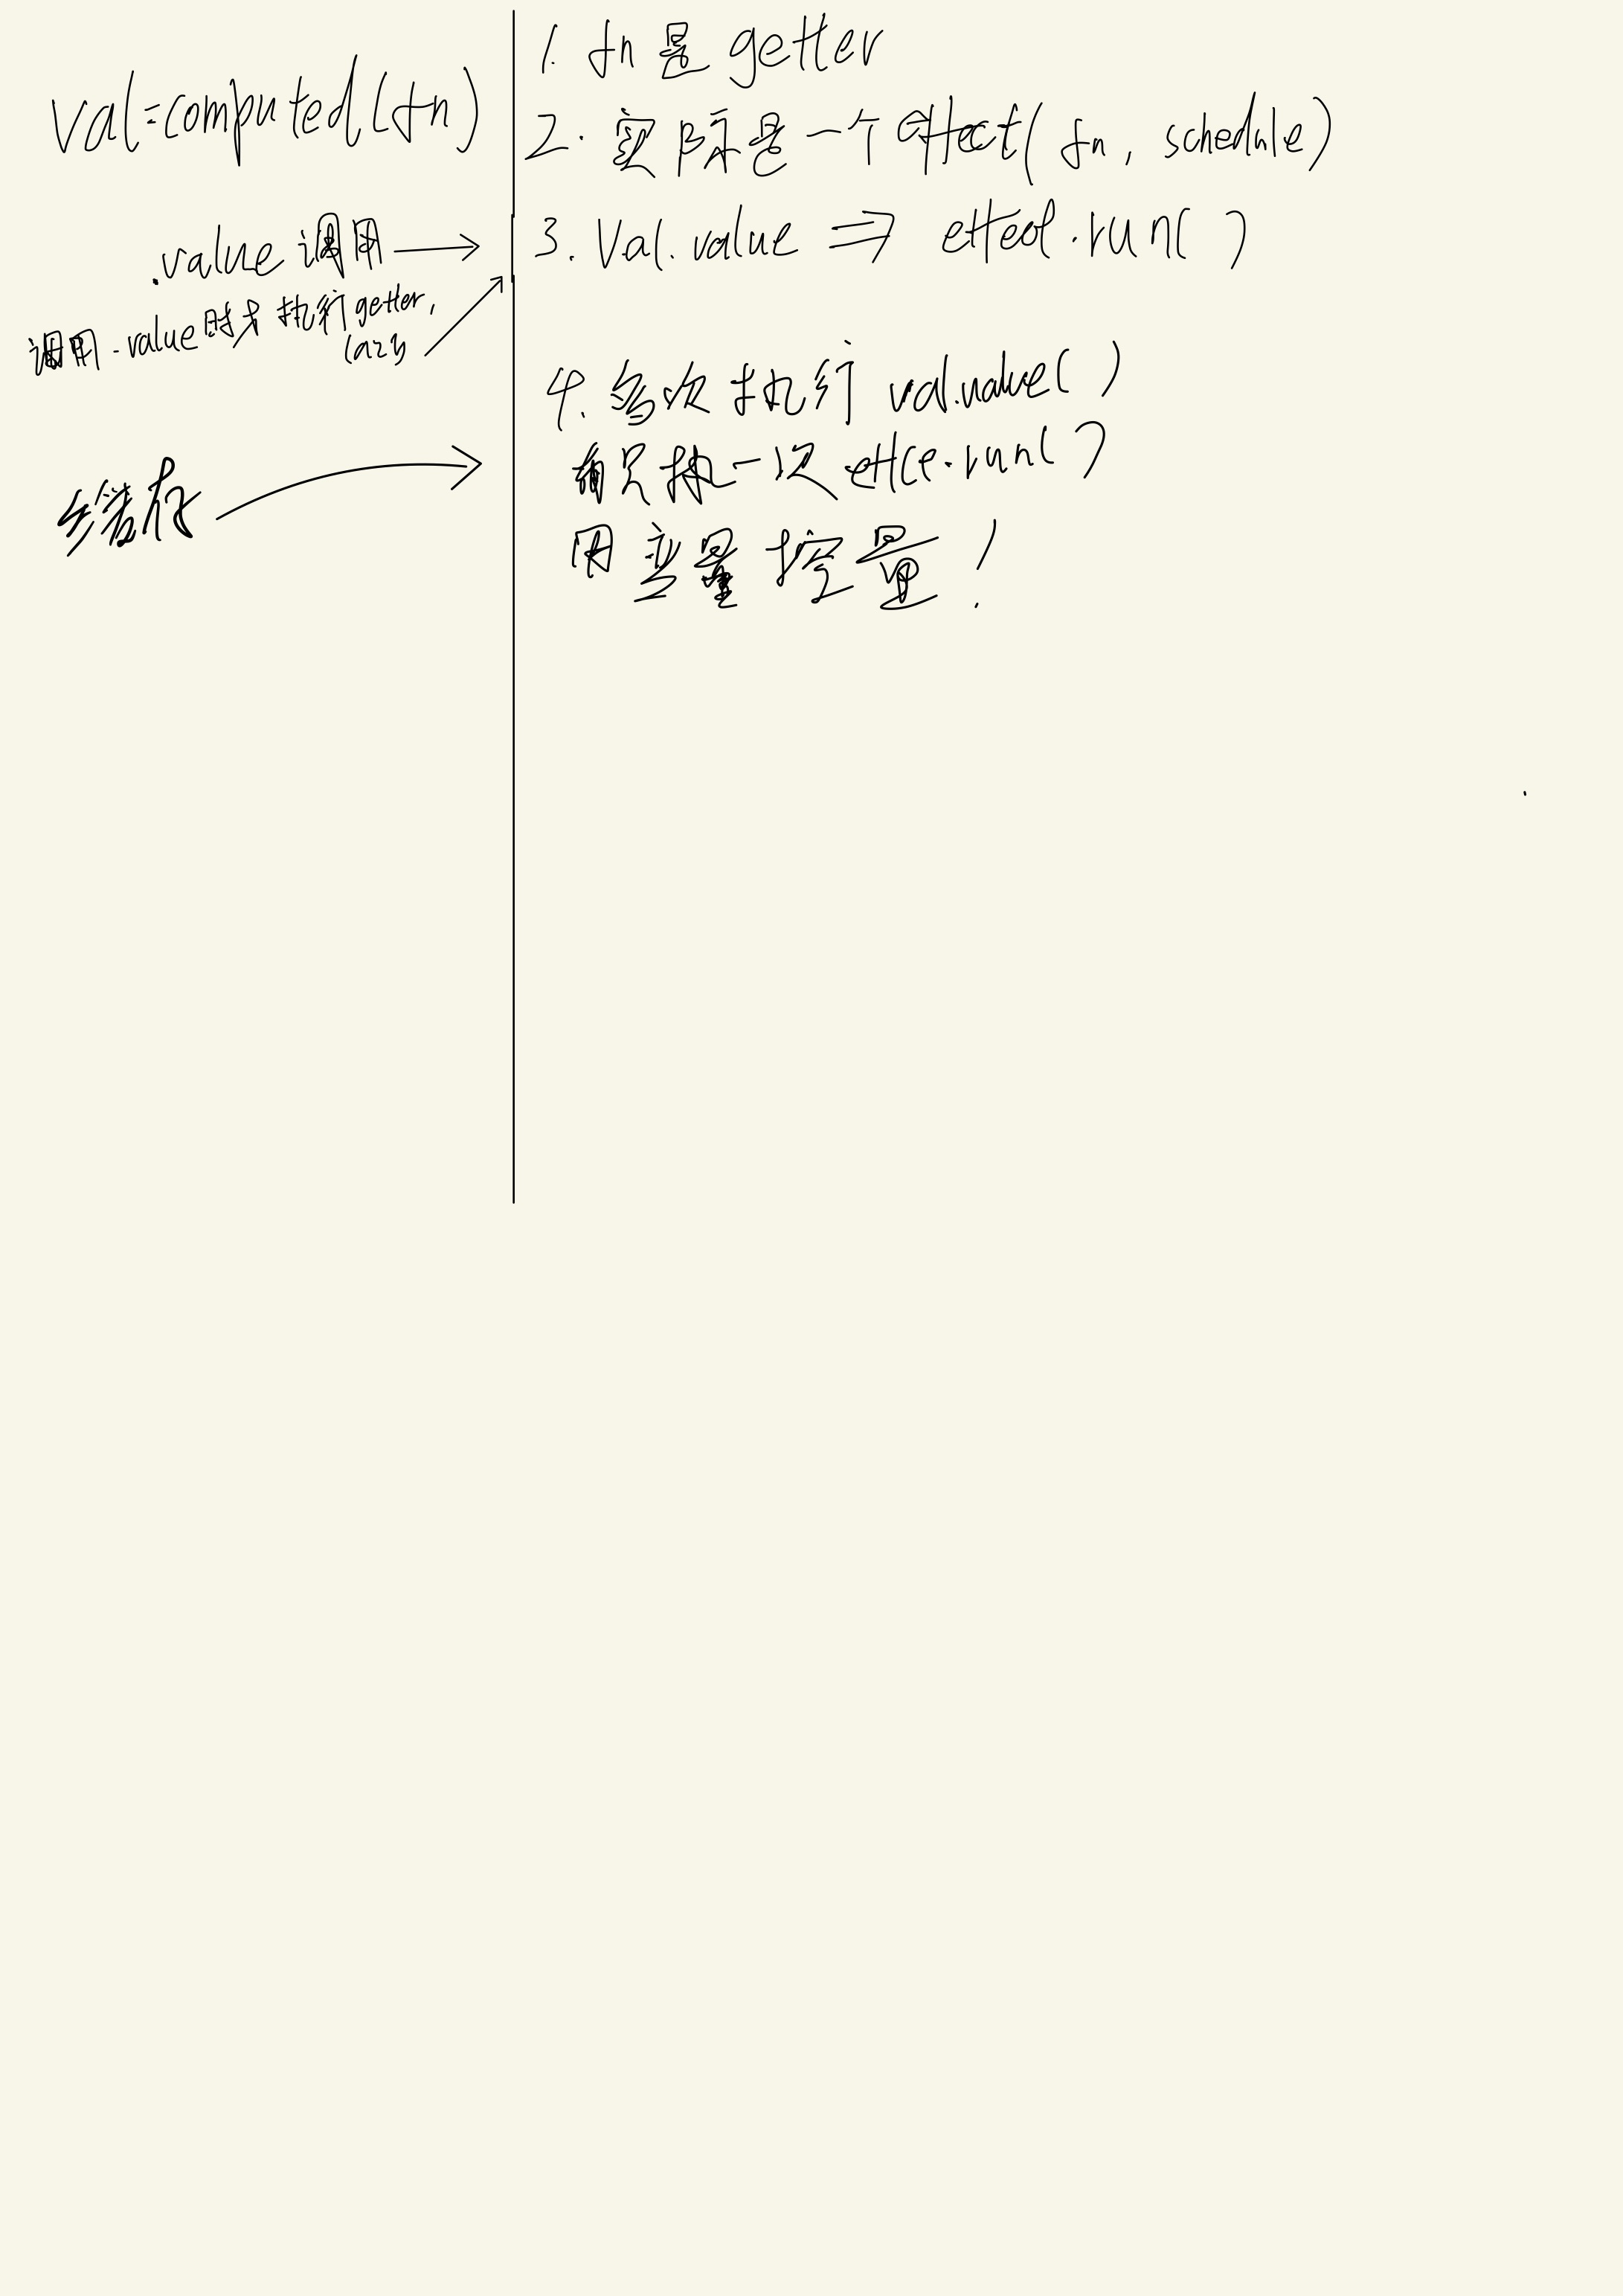 val=computed(fn)
.value调用
调用.value时才执行getter,
lazy
缓存
1. fn是getter
2. 实际是一个effect(fn, schedule)
3. Val.value => effect.run()
4. 多次执行 val.value()
只执一次effce.run()
用变量控量!